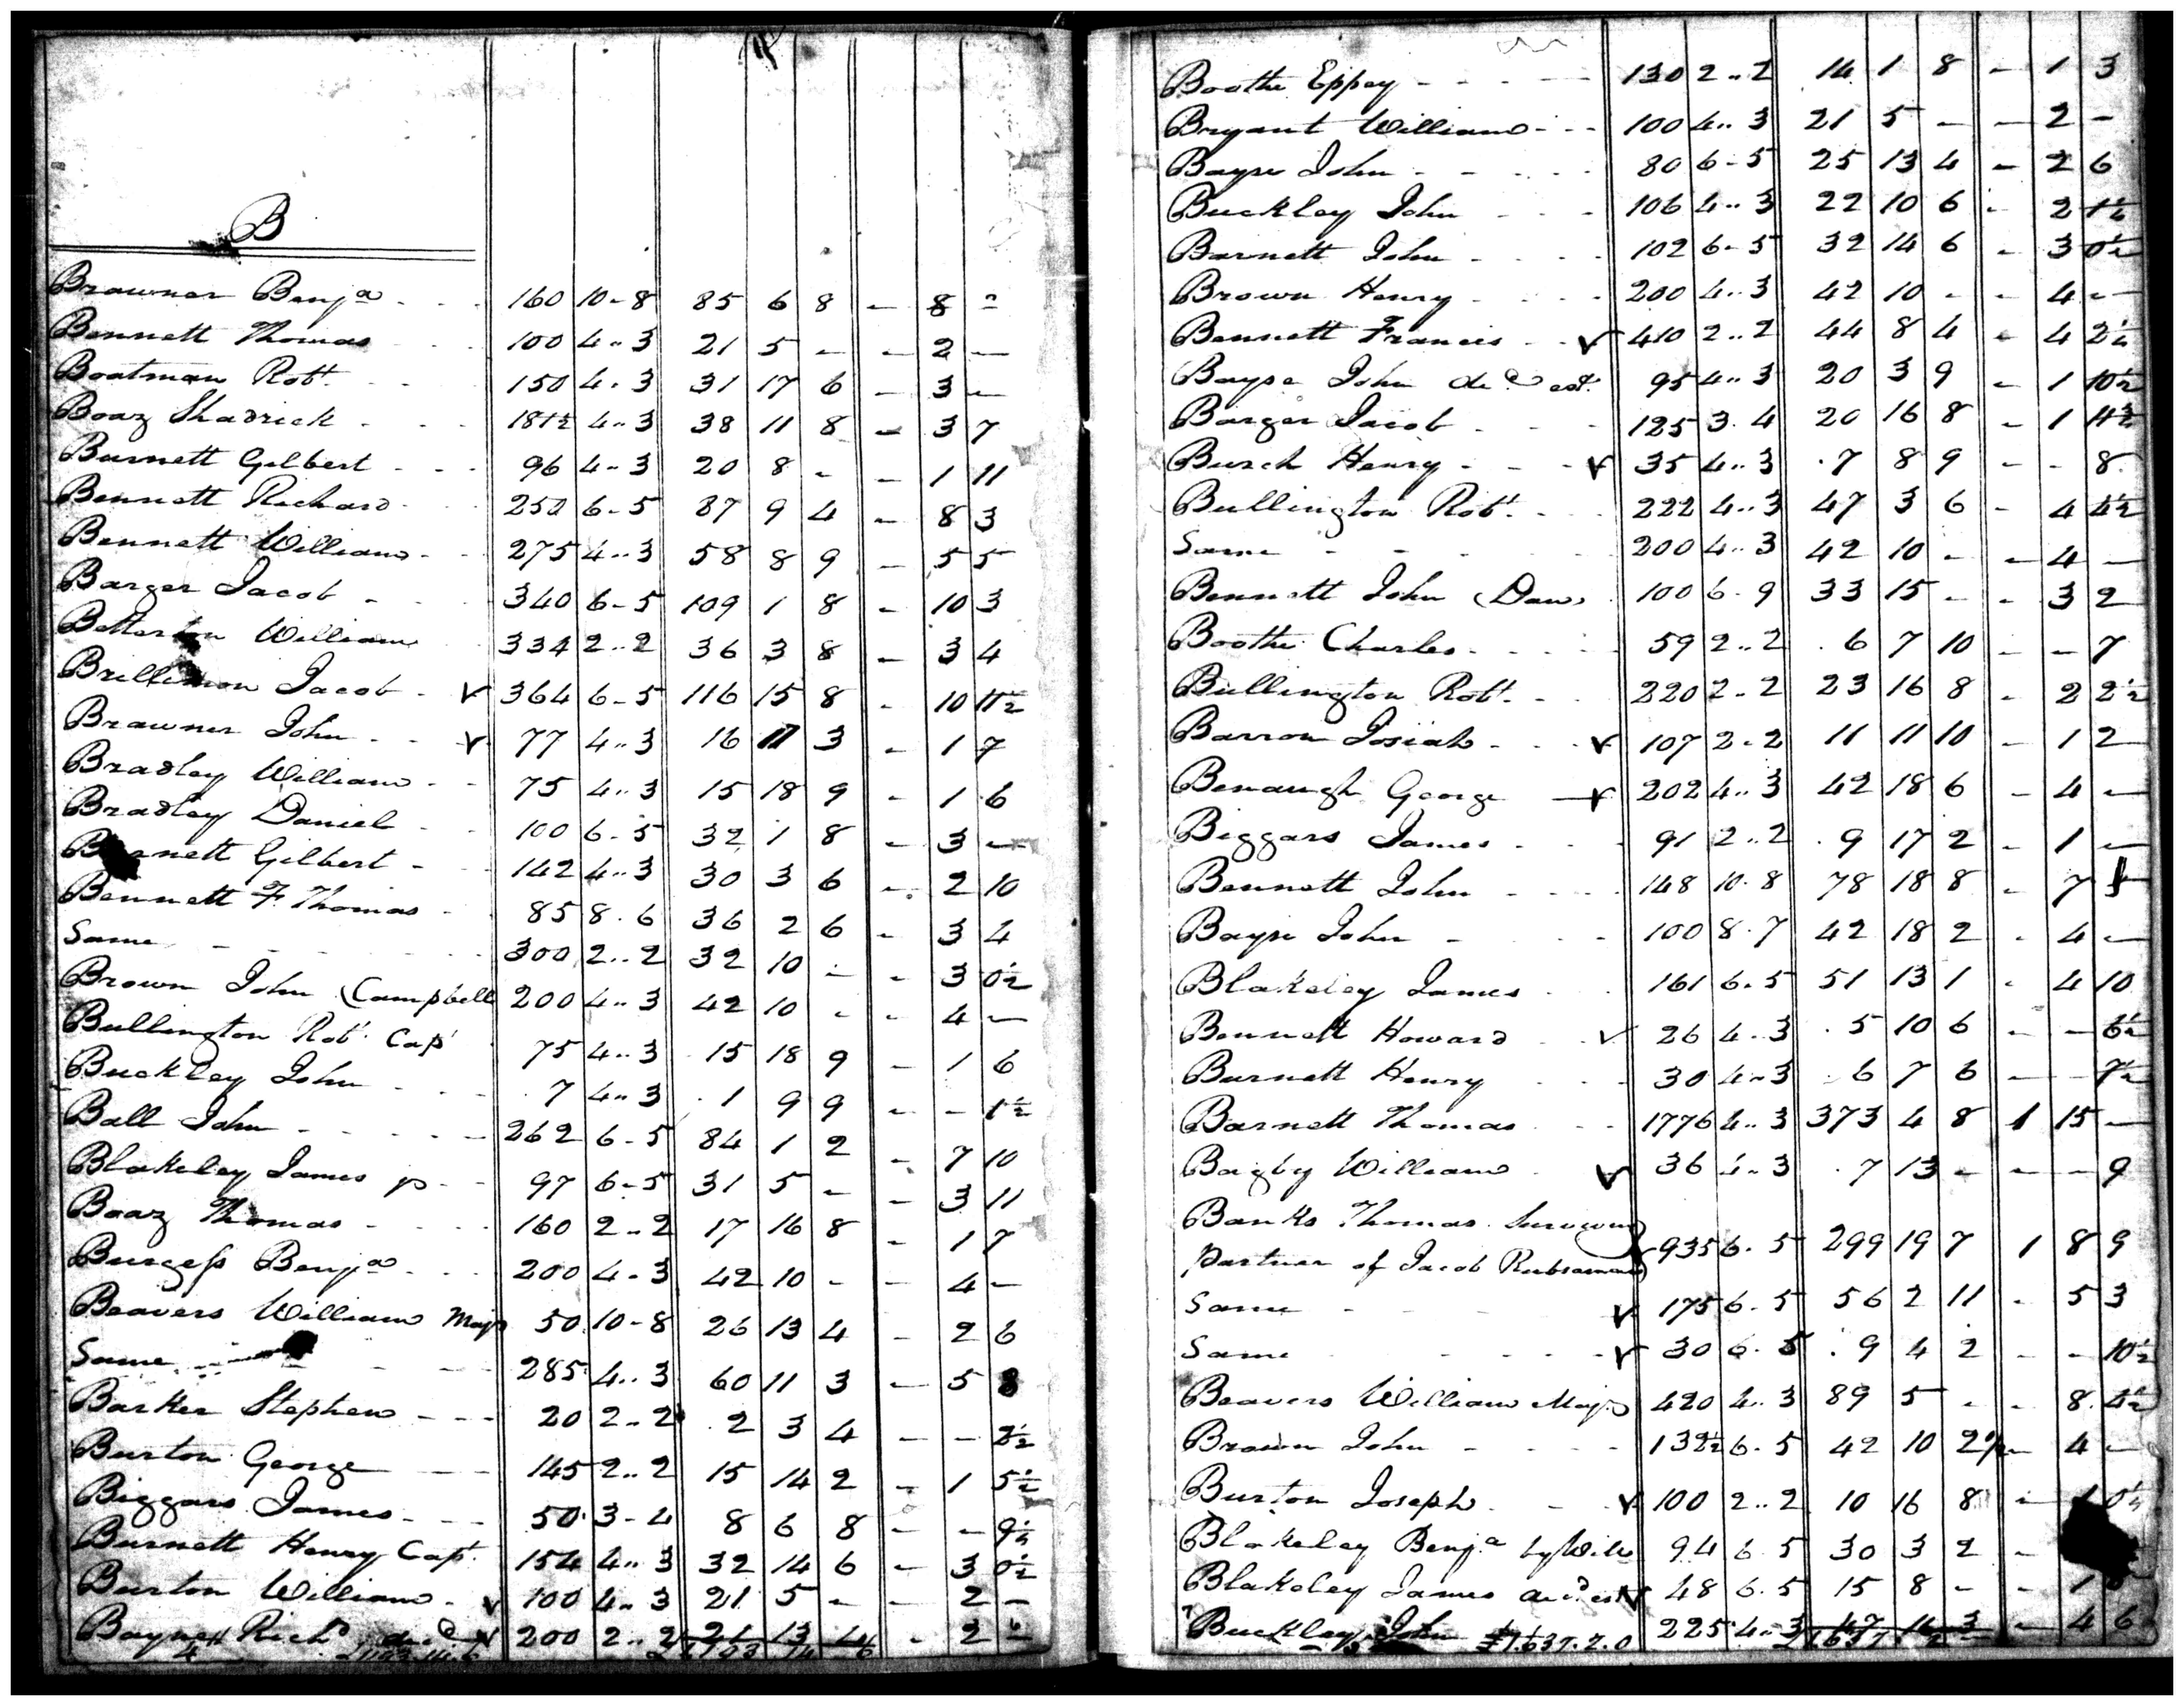 B
Brawner Benja - - 160 10-8 85 6 8 - 8 -
Bennett Thomas - - 100 4..3 21 5 - - 2 -
Boatman Robt. - - 150 4.3 31 17 6 - 3 -
Boaz Shadrick - - 181½ 4..3 38 11 8 - 3 7
Burnett Gilbert - - 96 4..3 20 8 - - 1 11
Bennett Richard - - 6-5 87 9 4 - 8 3
Bennett William - - 275 4..3 58 8 9 - 5 5
Barger Jacob - - 340 6-5 109 1 8 - 10 3
Betterton William 334 2..2 36 3 8 - 3 4
Jacob - v 364 6-5 116 15 8 - 10 11½
Brawner John - - v 77 4..3 16 3 - 1 7
Bradley William - - 75 4..3 15 18 9 - 1 6
Bradley Daniel - - 100 6-5 32 1 8 - 3 -
Gilbert - 142 4..3 30 3 6 - 2 10
Bennett F. Thomas - 85 8.6 36 2 6 - 3 4
Same - - 300 2..2 32 10 - - 3 0½
Brown John (Campbell 200 4..3 42 10 - - 4 -
Bullington Robt. Capt 75 4..3 15 18 9 - 1 6
Buckley John - - 7 4..3 1 9 9 - - 1½
Ball John - - - 262 6-5 84 1 2 - 7 10
Blakeley James p - - 97 6-5 31 5 - - 3 11
Boaz Thomas - - 160 2..2 17 16 8 - 1 7
Burgess Benja - - 200 4-3 42 10 - - 4 -
Beavers William Majr 50 10-8 26 13 4 - 2 6
Same - - 285 4..3 60 11 3 - 5 8
Barker Stephen - - - 20 2..2 2 3 4 - - 2½
Burton George - - 145 2..2 15 14 2 - 1 5½
Biggars James - - 50 3-4 8 6 8 - - 9¼
Burnett Henry Capt. 154 4..3 32 14 6 - 3 0½
Burton William - v 100 4..3 21 5 - - 2 -
Richd 200 2..2 21 13 - 2
Boothe Eppey - - - 130 2..2 14 1 8 - 1 3
Bryant William - - 100 4..3 21 5 - - 2 -
Bayse John - - 80 6-5 25 13 4 - 2 6
Buckley John - - 106 4..3 22 10 6 - 2 1½
Barnett John - - 102 6-5 32 14 6 - 3 0½
Brown Henry - - 200 4..3 42 10 - - 4 -
Bennett Francis - - v 410 2..2 44 8 4 - 4 2¼
Bayse John decd est. 95 4..3 20 3 9 - 1 10½
Barger Jacob - - 125 3.4 20 16 8 - 1 11½
Burch Henry - - v 35 4..3 7 8 9 - - 8
Bullington Robt. - - 222 4..3 47 3 6 - 4 4½
Same - - - 200 4..3 42 10 - - 4 -
Bennett John (Dan) 100 6.9 33 15 - - 3 2
Boothe Charles - - 59 2..2 6 7 10 - - 7
Bullington Robt. - - 220 2..2 23 16 8 - 2 2½
Barron Josiah - - v 107 2..2 11 11 10 - 1 2
Benaugh George - v 202 4..3 42 18 6 - 4 -
Biggars James - - 91 2..2 9 17 2 - 1 -
Bennett John - - 148 10.8 78 18 8 - 7
Bayse John - - 100 8.7 42 18 2 - 4 -
Blakeley James - - 161 6.5 51 13 1 - 4 10
Bennett Howard - v 26 4..3 5 10 6 - - 6½
Burnett Henry - - 30 4..3 6 7 6 - - 7½
Barnett Thomas - - 1776 4..3 373 4 8 1 15 -
Bagby William v 36 4..3 7 13 - - - 9
Banks Thomas Surviving
partner of Jacob Rubsamen) v 935 6.5 299 19 7 1 8 9
Same - - v 175 6.5 56 2 11 - 5 3
Same - - v 30 6.5 9 4 2 - - 10½
Beavers William Majr 420 4..3 89 5 - - 8 4½
Brown John - - 132½ 6.5 42 10 2½ - 4 -
Burton Joseph - - v 100 2..2 10 16 8 - 1 0½
Blakeley Benja by Wile 94 6.5 30 3 2 -
Blakeley James decd est v 48 6.5 15 8 - - 1
Buckley John £1637.2.0 225 4..3 47 16 3 - 4 6